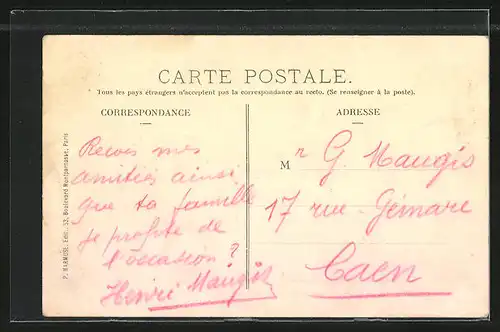 CARTE POSTALE.
Tous les pays étrangers n'acceptent pas la correspondance au recto. (Se renseigner à la poste).
CORRESPONDANCE
ADRESSE
Recois mes
amitiés ainsi
que ta famille
je profite de
l'occasion ?
Henri Maugis
Mr G. Maugis
17 rue Gémare
Caen
Edit., 53, Boulevard Montparnasse, Paris